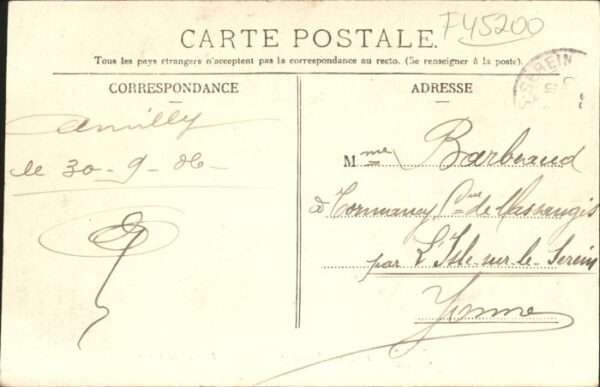 F45200
CARTE POSTALE.
Tous les pays étrangers n'acceptent pas la correspondance au recto. (Se renseigner à la poste).
CORRESPONDANCE
Amilly
le 30-9-06
ADRESSE
SEREIN
Mme Barbeaud
à Tormancy Cne de Massangis
par L'Isle-sur-le-Serein
Yonne